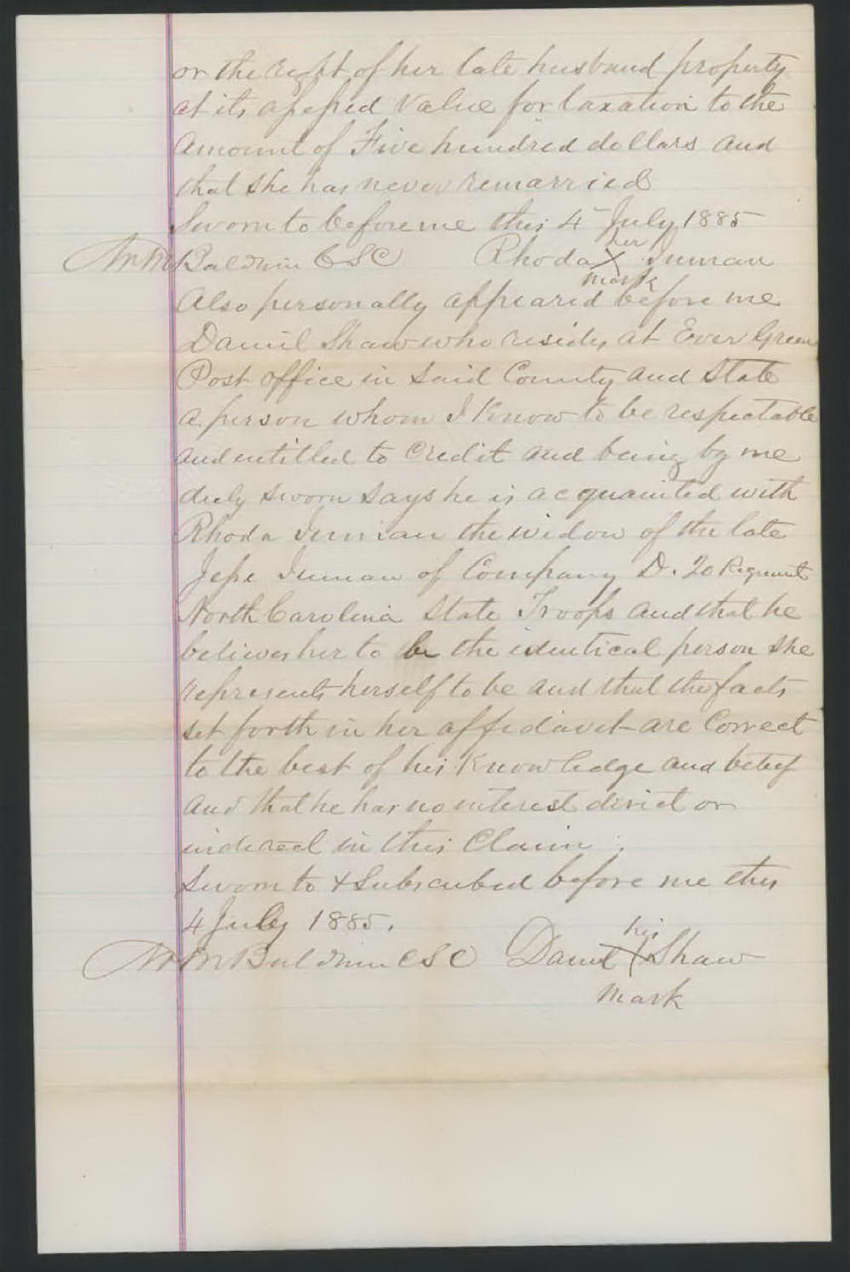 or the right of her late husband property
at its assessed value for taxation to the
amount of Five hundred dollars and
that she has never remarried
Sworn to before me this 4 July 1885
Baldwin CSC Rhoda her X mark Inman
Also personally appeared before me
Daniel Shaw who resides at Ever Green
Post office in said County and State
a person whom I know to be respectable
and entitled to Credit and being by me
duly sworn says he is acquainted with
Rhoda Inman the widow of the late
Jesse Inman of Company D. 20 Regiment
North Carolina State Troops and that he
believes her to be the identical person she
represents herself to be and that the facts
set forth in her affidavit are Correct
to the best of his Knowledge and belief
and that he has no interest direct or
indirect in this Claim.
Sworn to & Subscribed before me this
4 July 1885.
Baldwin CSC Daniel his X mark Shaw